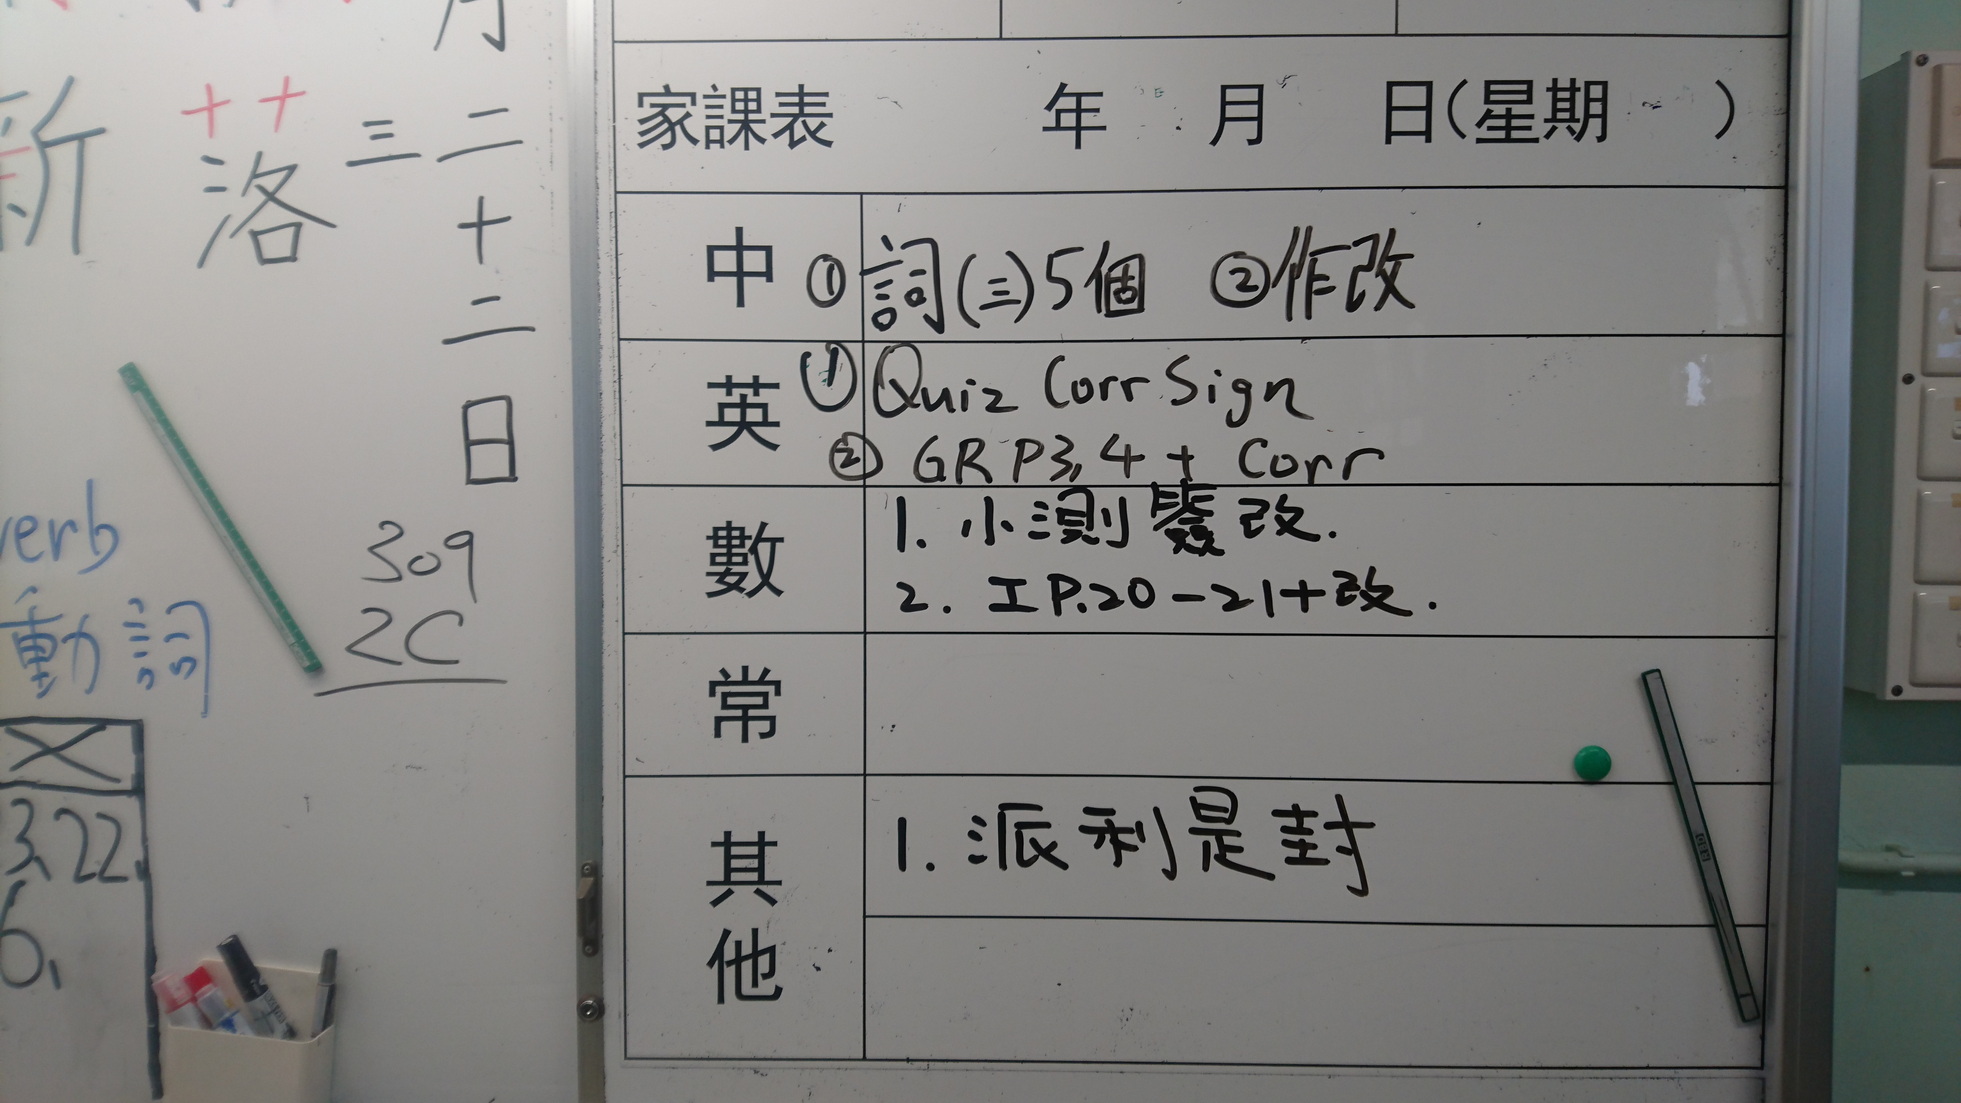 月
二
十
二
日
三
新 落
verb
動詞
309
2C
3,22,
6,
家課表 年 月 日(星期 )
中 ① 詞(三)5個 ②作改
英 ① Quiz Corr Sign
② GR P3,4 + Corr
數 1. 小測簽改.
2. 工 P.20-21+改.
常
其他 1. 派利是封